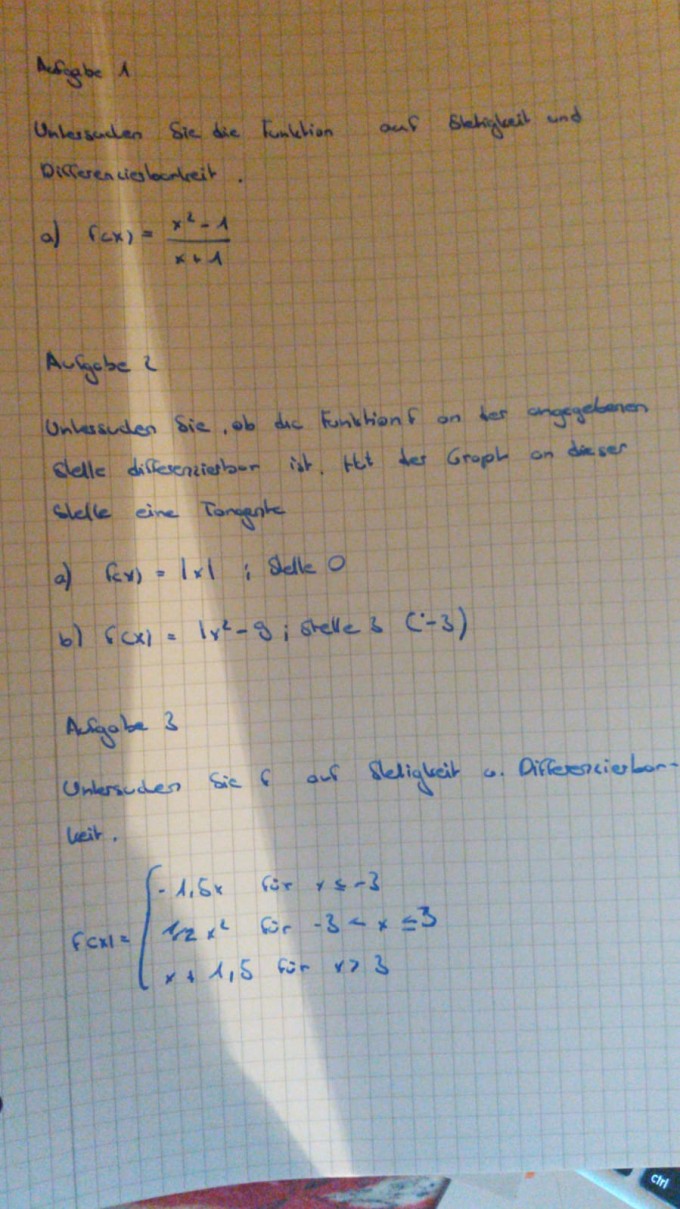 Aufgabe 1
Untersuchen Sie die Funktion auf Stetigkeit und
Differenzierbarkeit.
a) f(x) = x² - 1 / x + 1
Aufgabe 2
Untersuchen Sie, ob die Funktion f an der angegebenen
Stelle differenzierbar ist. Hat der Graph an dieser
Stelle eine Tangente
a) f(x) = |x| ; Stelle 0
b) f(x) = |x² - 9 ; Stelle 3 (-3)
Aufgabe 3
Untersuchen Sie f auf Stetigkeit u. Differenzierbar-
keit.
f(x) = { -1,5x für x ≤ -3
1/2 x² für -3 < x ≤ 3
x + 1,5 für x > 3
ctrl